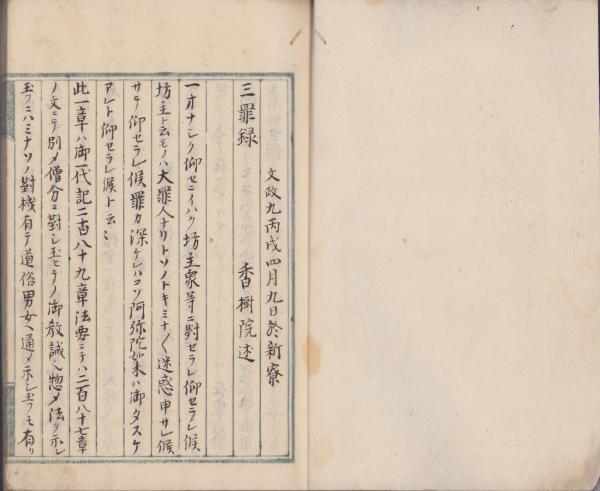 三罪録
文政九丙戌四月九日於新寮
香樹院述
一オナシク仰セニイハク坊主衆等ニ對セラレ仰セラレ候
坊主ト云モノハ大罪人ナリトソノトキミナ〱迷惑申サレ候
サテ仰セラレ候罪カ深ケレハコソ阿弥陀如来ハ御タスケ
アレト仰セラレ候ト云々
此一章ハ御一代記ニ百八十九章法要ニテハ二百八十七章
ノ文ニテ別メ僧分ニ對シ玉ヒテノ御教誡惣メ法ヲ示シ
玉フニハミナソノ對機有テ道俗男女ヘ通メ示シ玉フモ有リ